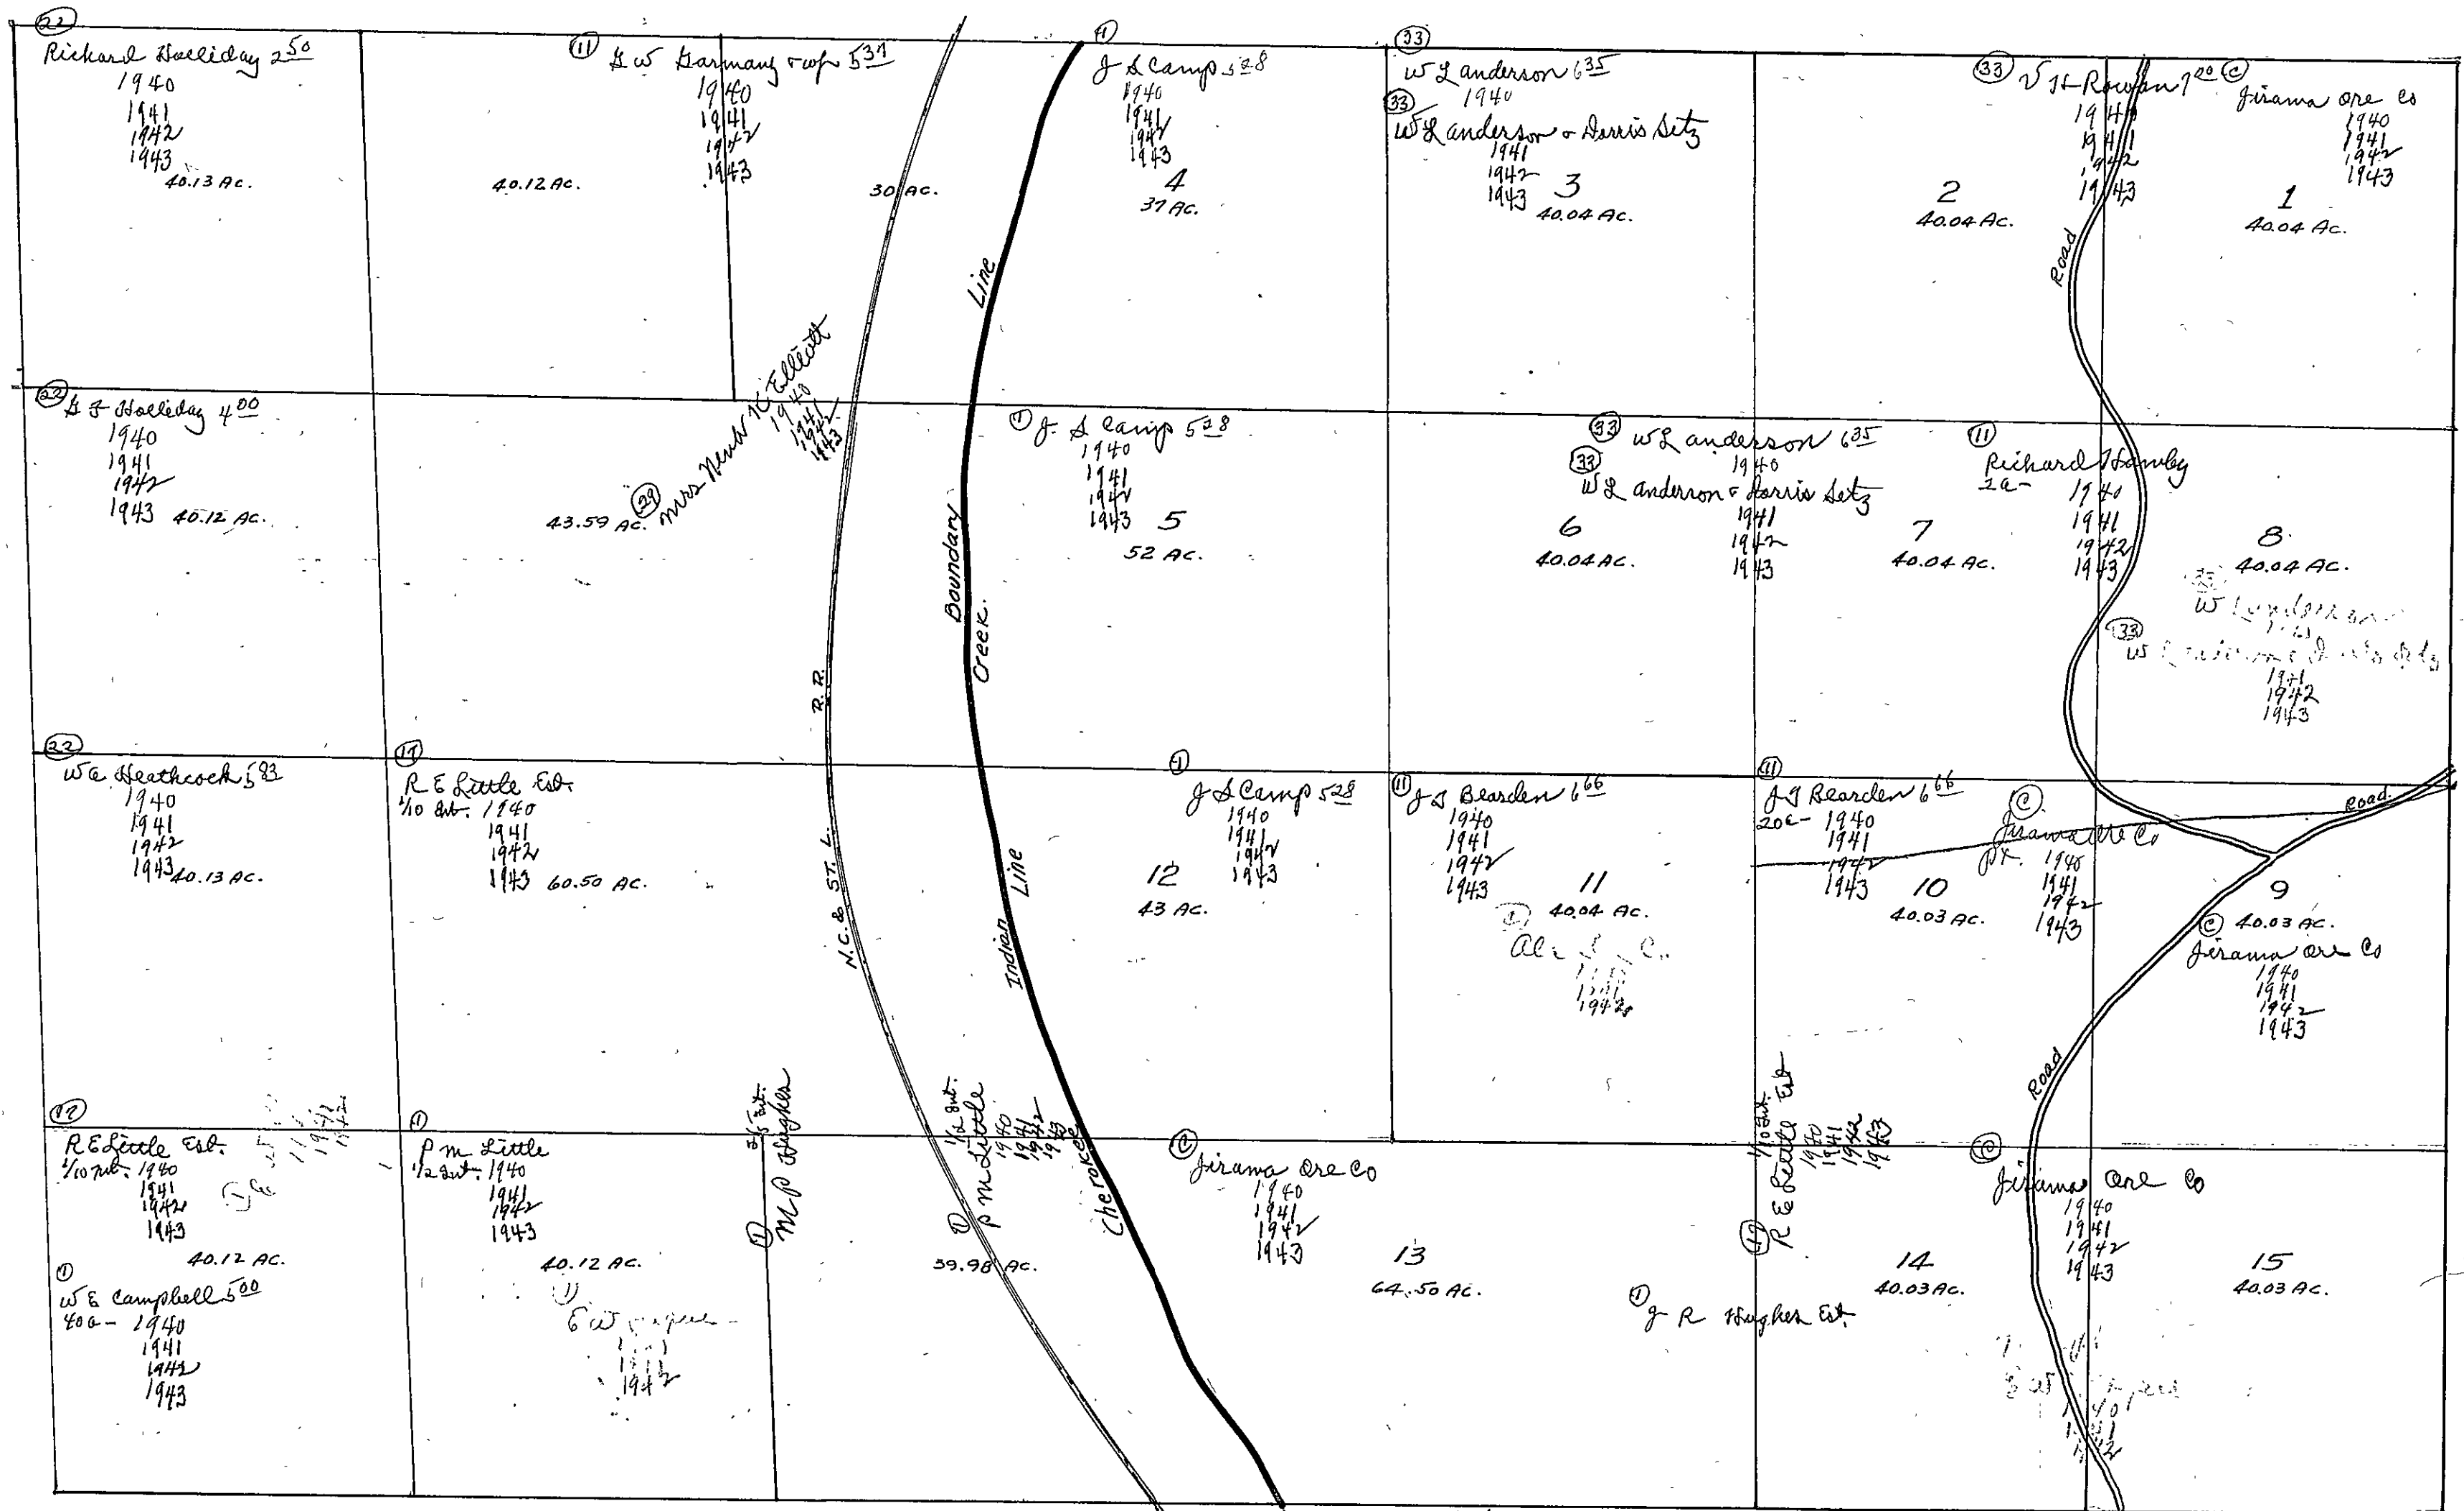 22
Richard Holliday 2 50
1940
1941
1942
1943
40.13 AC.
11 G W Garmany & wf 5 37
1940
1941
1942
1943
40.12 AC.
30 AC.
1
J S Camp 5 28
1940
1941
1942
1943
4
37 AC.
33
W L Anderson 6 35
1940
33
W L Anderson & Dorris Setz
1941
1942
1943
3
40.04 AC.
33 V H Rowan 7 20
1940
1941
1942
1943
2
40.04 AC.
Road
C
Jirama Ore Co
1940
1941
1942
1943
1
40.04 AC.
22
G F Holliday 4 00
1940
1941
1942
1943 40.12 AC.
43.59 AC.
29 Mrs K Elliott
1940
1941
1942
1943
Line
Boundary
Creek.
1 J. S Camp 5 28
1940
1941
1942
1943 5
52 AC.
33 W L Anderson 6 35
1940
33
W L Anderson & Dorris Setz
1941
1942
1943
6
40.04 AC.
7
40.04 AC.
11
Richard Hamby
2a-
1940
1941
1942
1943
8
40.04 AC.
33
W
33
W
1941
1942
1943
22
W A Heathcock 5 83
1940
1941
1942
1943 40.13 AC.
17
R E Little Est.
1/10 Int. 1940
1941
1942
1943 60.50 AC.
R.R.
N.C. & ST. L.
Indian Line
Cherokee
1
J S Camp 5 28
1940
1941
1942
1943
12
43 AC.
11 J T Bearden 6 66
1940
1941
1942
1943
11
40.04 AC.
1942
11
J T Bearden 6 66
20a- 1940
1941
1942
1943
10
40.03 AC.
C
Jirama Ore Co
pt. 1940
1941
1942
1943
Road.
9
40.03 AC.
C
Jirama Ore Co
1940
1941
1942
1943
Road
17
R E Little Est.
1/10 Int. 1940
1941
1942
1943
40.12 AC.
1
W E Campbell 5 00
40a- 1940
1941
1942
1943
1
P M Little
1/2 Int. 1940
1941
1942
1943
40.12 AC.
1
E W
1942
1 M P Hughes
Int.
1 P M Little
1/2 Int.
1940
1941
1942
1943
39.98 AC.
C
Jirama Ore Co
1940
1941
1942
1943
13
64.50 AC.
1
J R Hughes Est.
17 R E Little Est
1/10 Int.
1940
1941
1942
1943
14
40.03 AC.
C
Jirama Ore Co
1940
1941
1942
1943
15
40.03 AC.